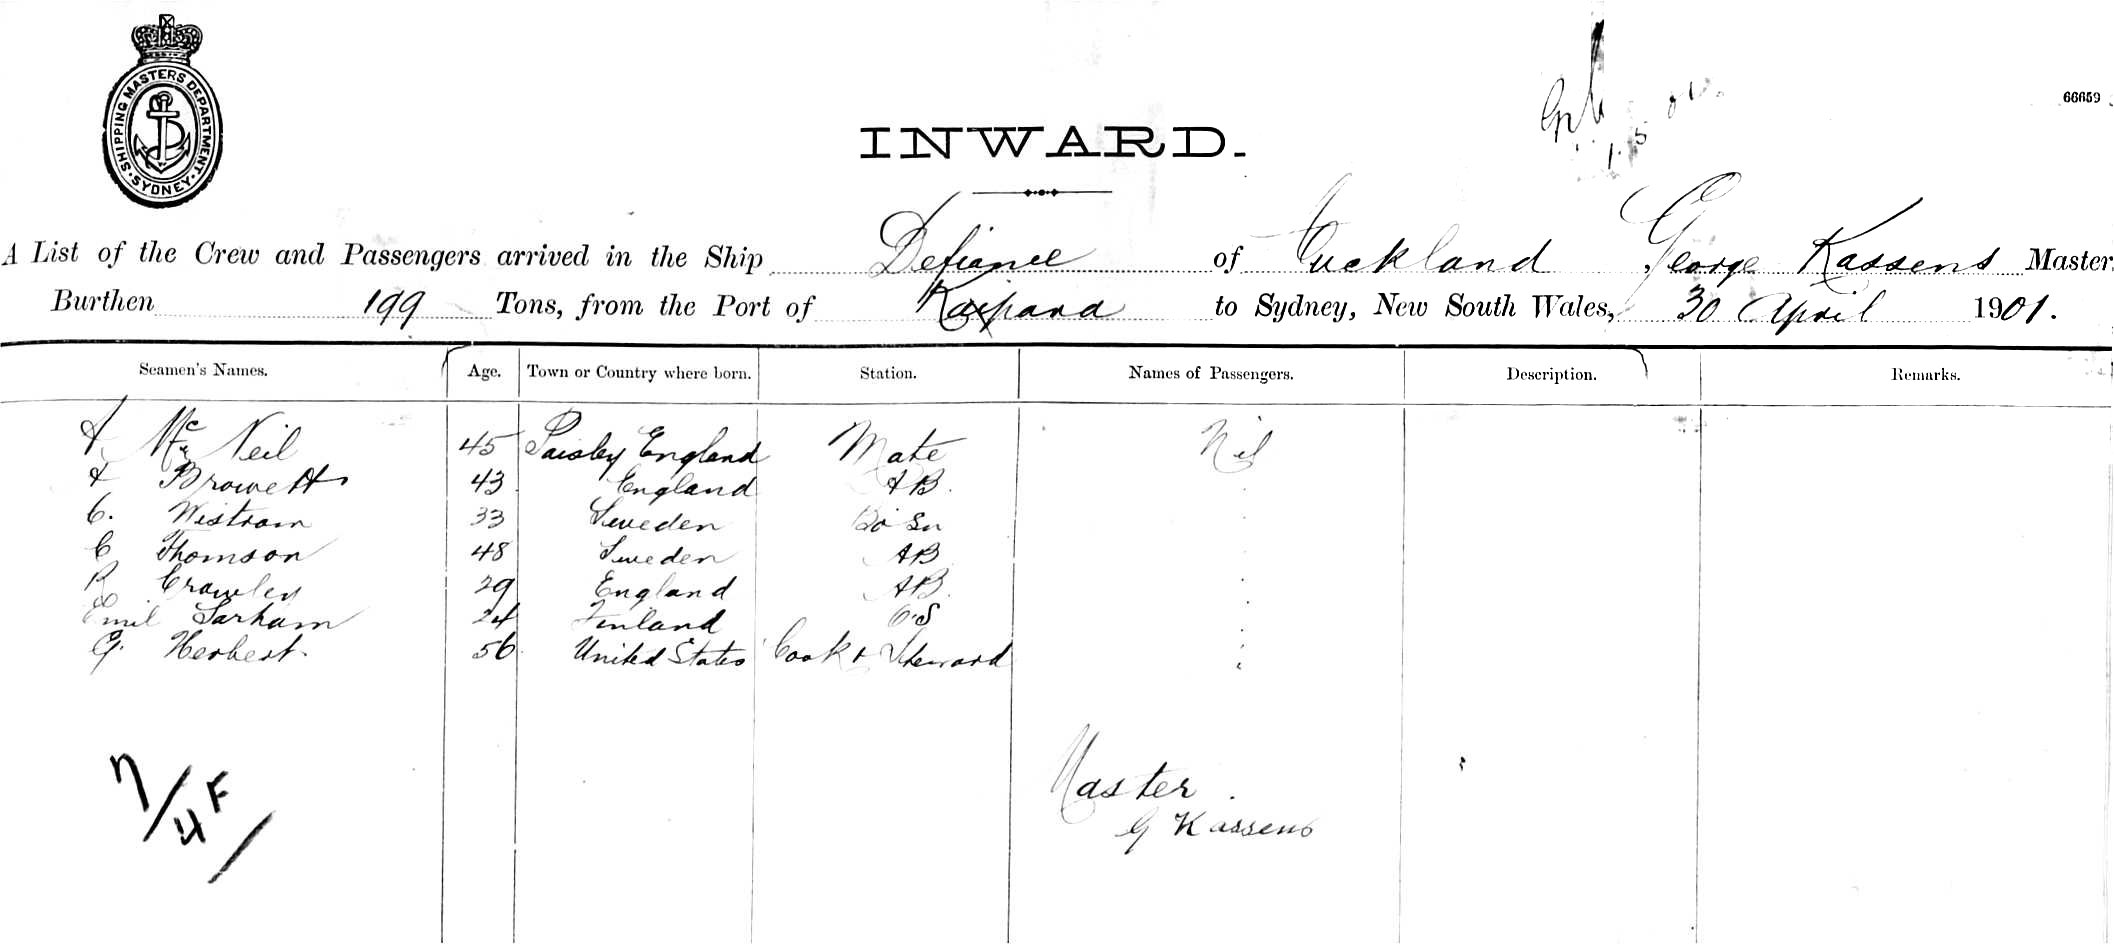 SHIPPING MASTERS DEPARTMENT. SYDNEY.
66659
1.5.01.
INWARD.
A List of the Crew and Passengers arrived in the Ship Defiance of Auckland George Kassens Master
Burthen 199 Tons, from the Port of Kaipara to Sydney, New South Wales, 30 April 1901.
Seamen's Names. Age. Town or Country where born. Station. Names of Passengers. Description. Remarks.
A McNeil 45 Paisley England Mate Nil
A Browett 43 England AB.
C. Wistrom 33 Sweden Bo'sn
C Thomson 48 Sweden AB
R Crawley 29 England AB.
Emil Sarham 24 Finland O.S
G. Herbert. 56 United States Cook & Steward
7/4F/
Master.
G Kassens